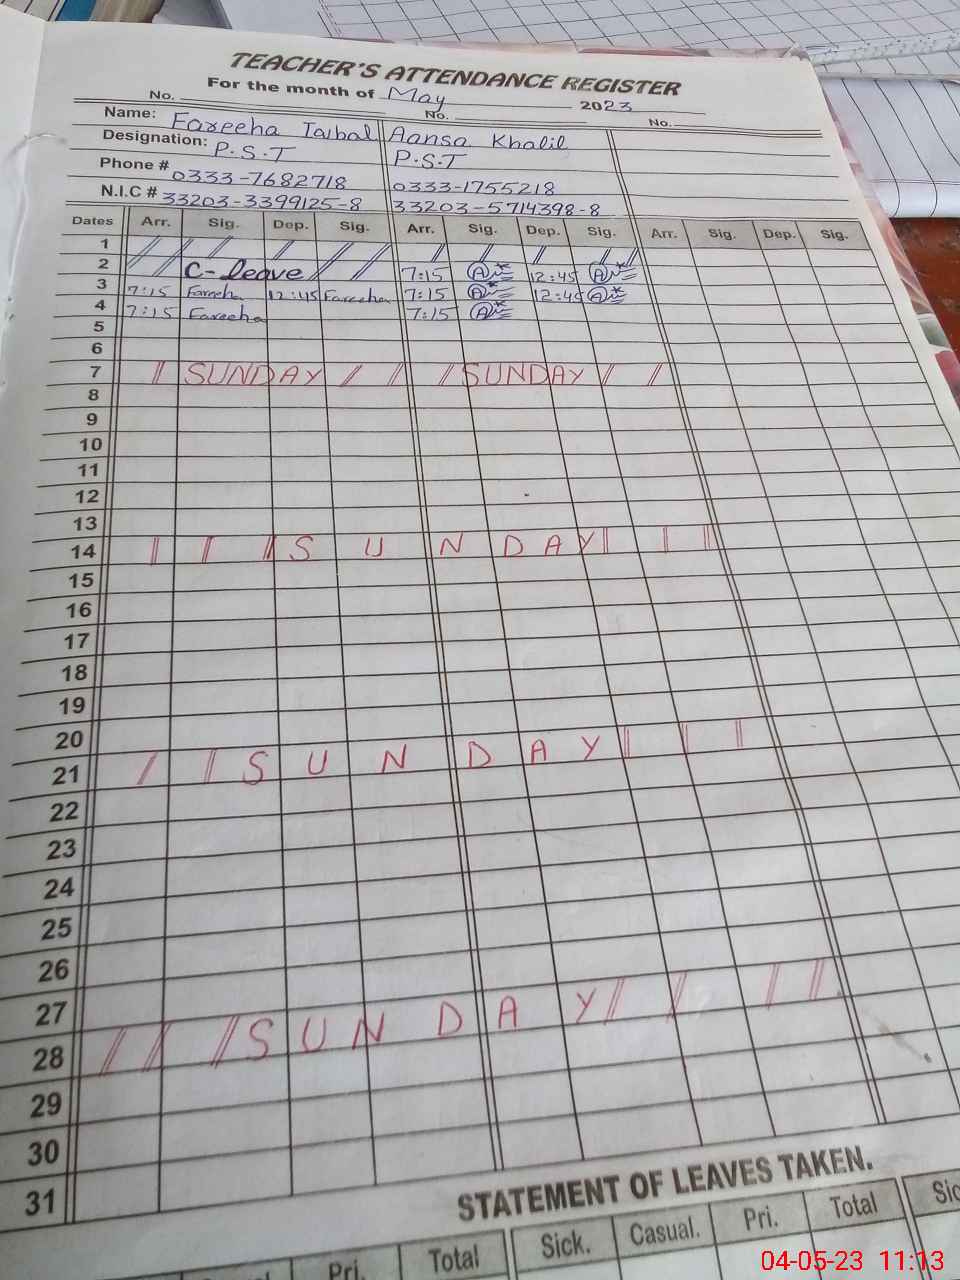 TEACHER'S ATTENDANCE REGISTER
For the month of May 2023
No. No. No.
Name: Fareeha Iqbal Aansa Khalil
Designation: P.S.T P.S.T
Phone # 0333-7682718 0333-1755218
N.I.C # 33203-3399125-8 33203-5714398-8
Dates Arr. Sig. Dep. Sig. Arr. Sig. Dep. Sig. Arr. Sig. Dep. Sig.
1
2 C-leave 7:15 12:45
3 7:15 Fareeha 12:45 Fareeha 7:15 12:45
4 7:15 Fareeha 7:15
5
6
7 SUNDAY SUNDAY
8
9
10
11
12
13
14 SUNDAY
15
16
17
18
19
20
21 SUNDAY
22
23
24
25
26
27
28 SUNDAY
29
30
31
STATEMENT OF LEAVES TAKEN.
Pri. Total Sick. Casual. Pri. Total
04-05-23 11:13